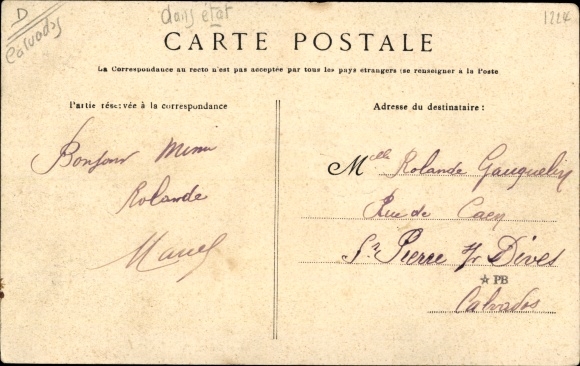 D
Calvados
dans état
1224
CARTE POSTALE
La Correspondance au recto n'est pas acceptée par tous les pays étrangers (se renseigner à la Poste
Partie réservée à la correspondance
Bonjour Mimi
Rolande
Marcel
Adresse du destinataire :
Melle Rolande Gauquelin
Rue de Caen
St Pierre s/ Dives
☆ PB
Calvados